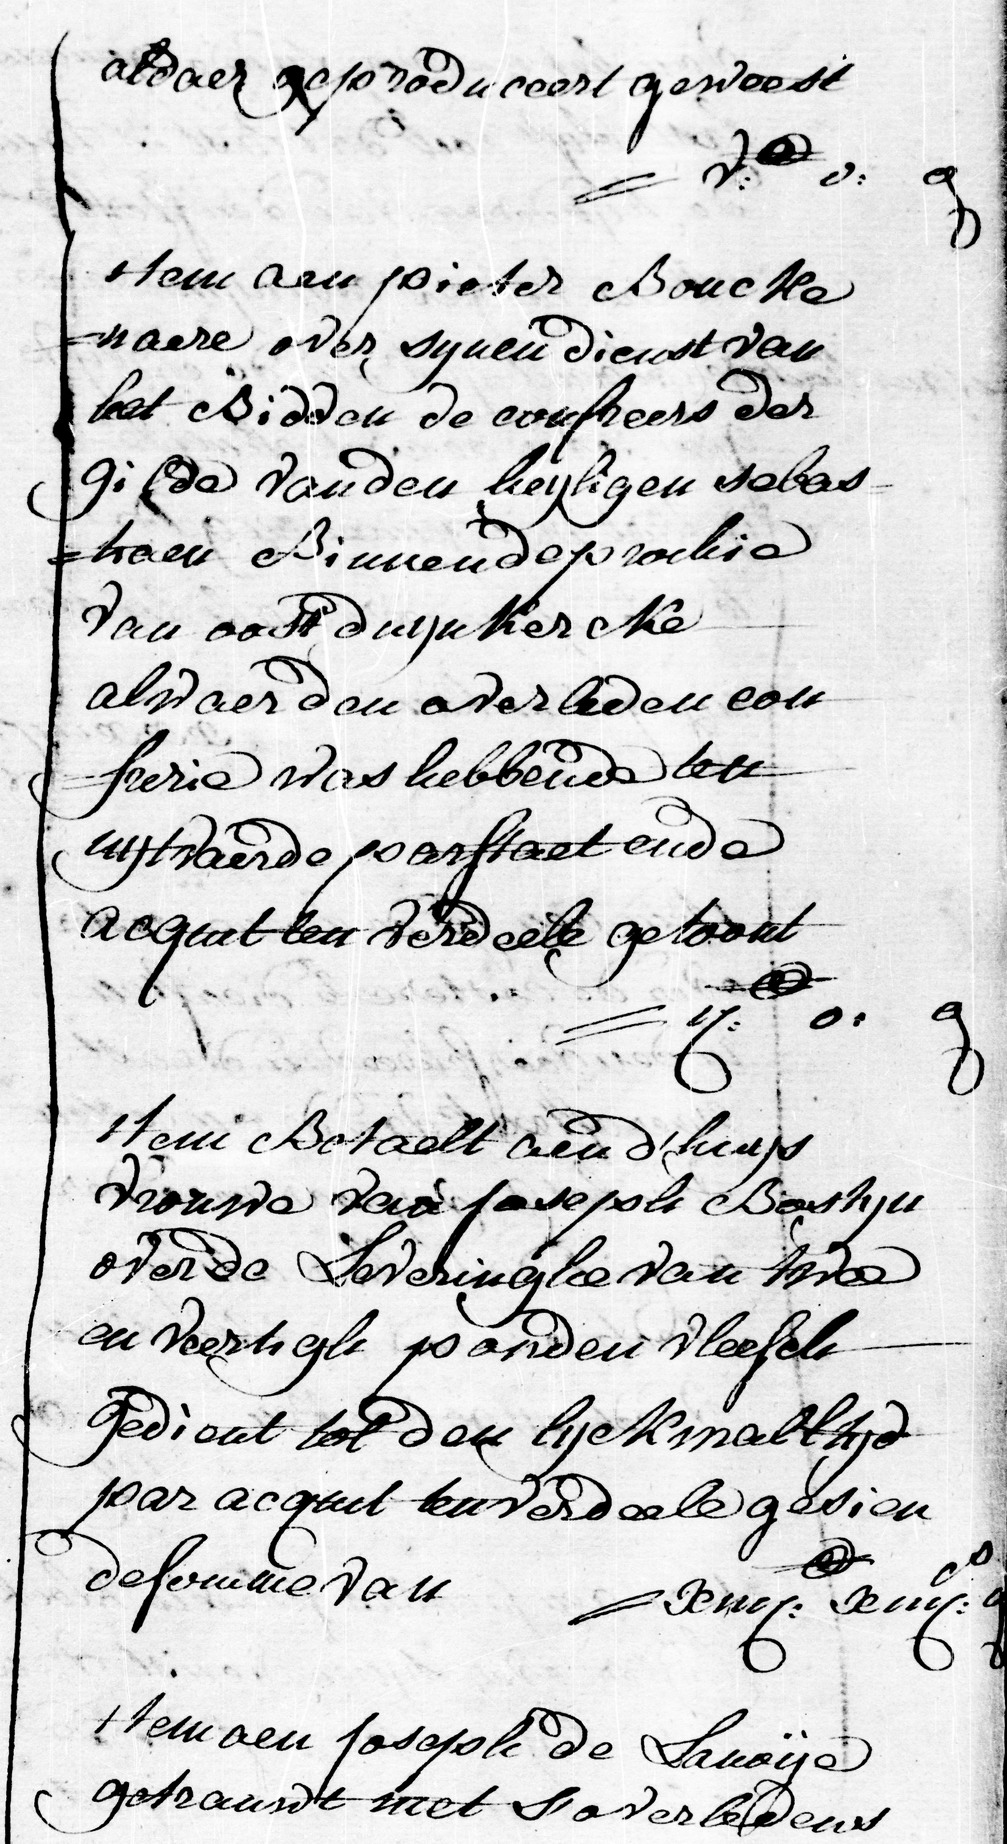 aldaer geproduceert geweest
= v: lb o: g
Item aen pieter Boucke
=naere over synen dienst van
het Bidden de confreers der
gilde vanden heyligen sebas=
=tiaen Binnen de prochie
van oostduynkercke
alwaer den overleden con
=frerie was hebbende ten
uytvaerde par staet ende
acquit ten verdeele getoont
= ij: lb o: g
Item Betaelt aen d'huys
vrouwe van joseph Bostyn
over de Leveringhe van twee
en veertigh ponden vleesch
gedient tot den lyckmaeltyd
par acquit ten verdeele gesien
de somme van = xiiij: lb xiiij: s g
Item aen joseph de Lanoÿe
getrauwt met s'overledens